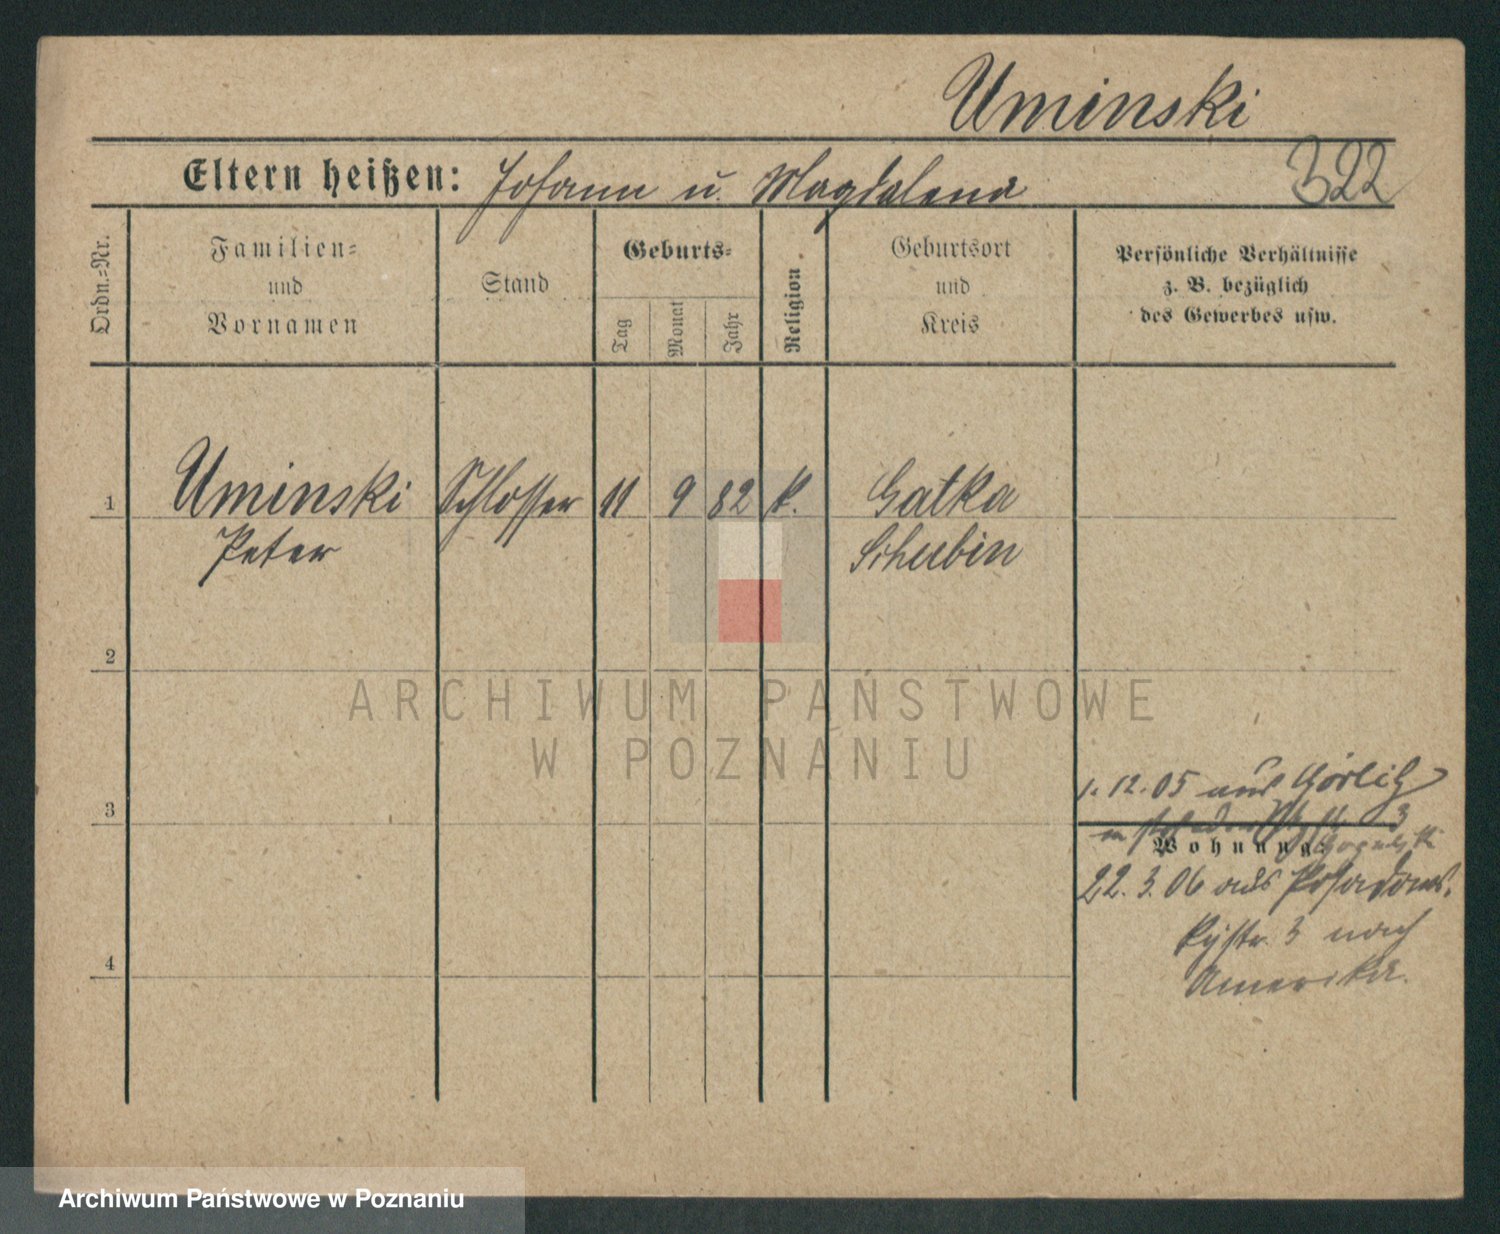 Uminski
Eltern heißen: Johann u. Magdalena
322
Ordn.=Nr.
Familien=
und
Vornamen
Stand
Geburts=
Tag
Monat
Jahr
Religion
Geburtsort
und
Kreis
Persönliche Verhältnisse
z. B. bezüglich
des Gewerbes usw.
1 Uminski Schlosser 11 9 82 k. Gatka
Peter Schubin
2
ARCHIWUM PAŃSTWOWE
W POZNANIU
1. 12. 05 aus Görlitz
3
3
Wohnung
22. 3. 06 aus Posadows.
kystr. 3 nach
4
Amerika.
Archiwum Państwowe w Poznaniu